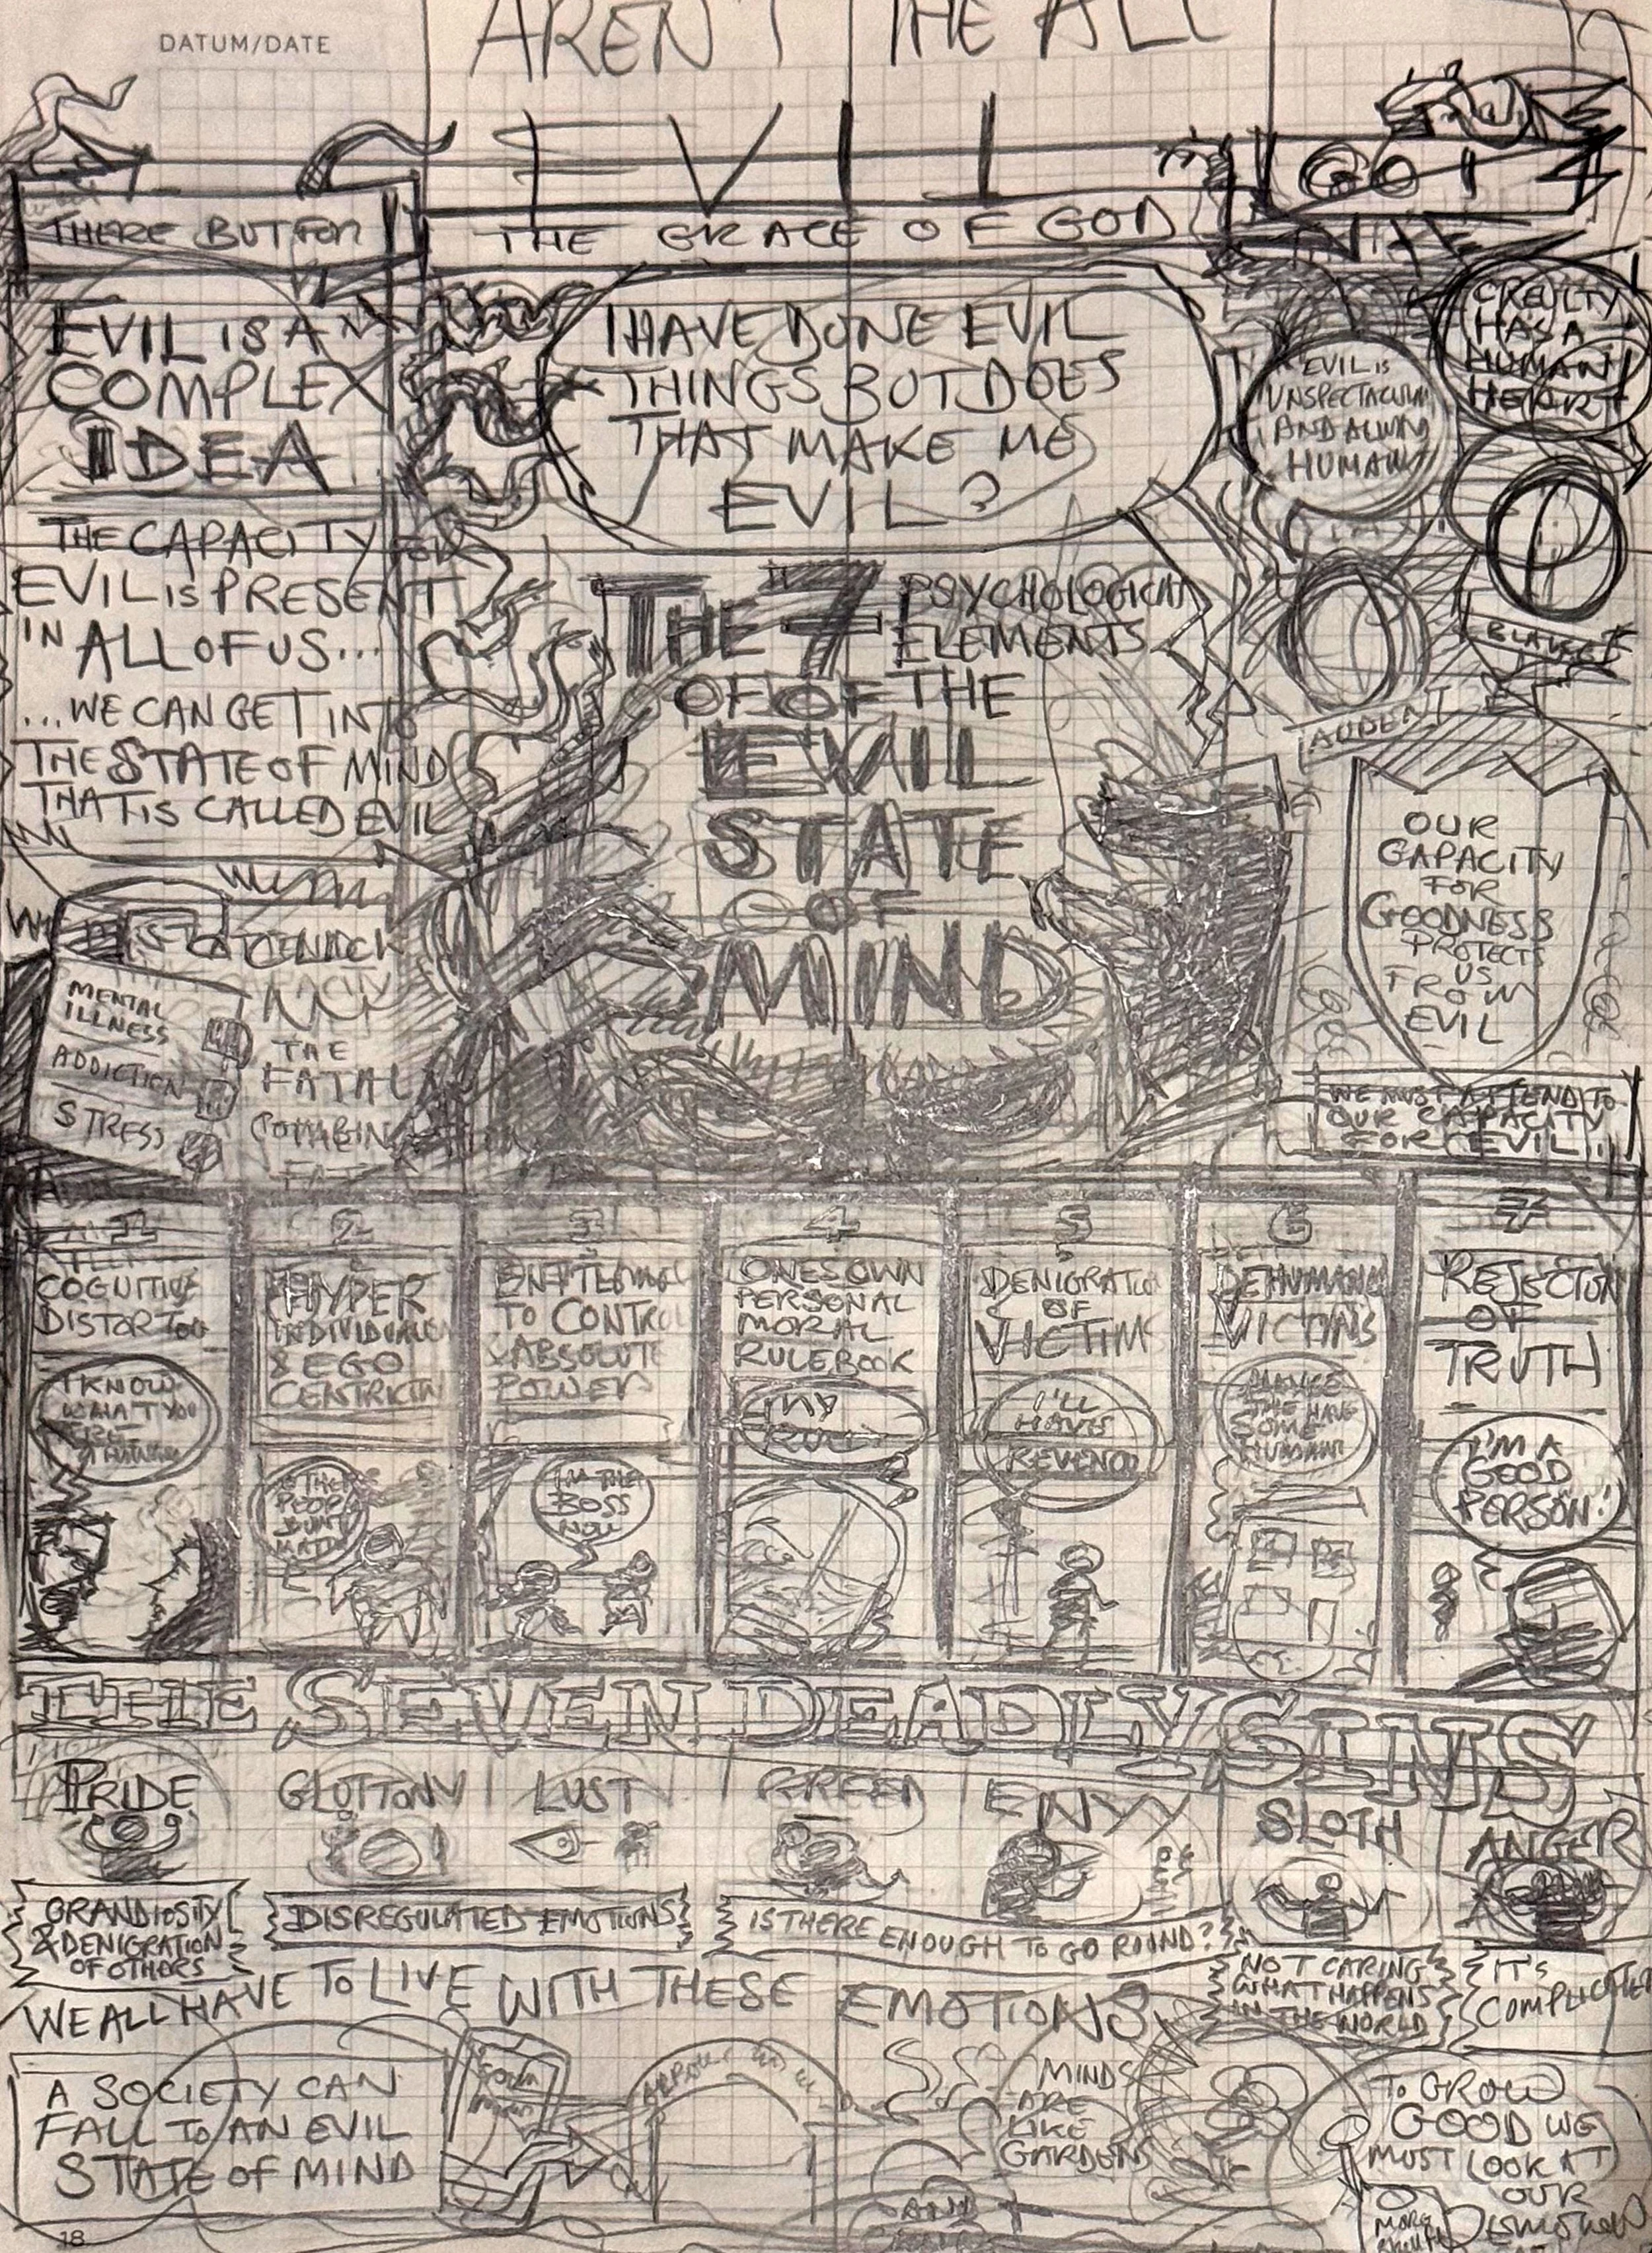 DATUM/DATE
AREN'T THE ALL
EVIL
THERE BUT FOR
THE GRACE OF GOD
GO I
EVIL IS A
COMPLEX
IDEA
THE CAPACITY FOR
EVIL IS PRESENT
IN ALL OF US...
...WE CAN GET INTO
THE STATE OF MIND
THAT IS CALLED EVIL
I HAVE DONE EVIL
THINGS BUT DOES
THAT MAKE ME
EVIL?
EVIL IS
UNSPECTACULAR
AND ALWAYS
HUMAN
CREULTY
HAS A
HUMAN
HEART
AUDEN
BLAKE
THE 7 PSYCHOLOGICAL
ELEMENTS
OF OF THE
EVIL
STATE
OF
MIND
MENTAL
ILLNESS
ADDICTION
STRESS
THE
FATAL
OUR
CAPACITY
FOR
GOODNESS
PROTECTS
US
FROM
EVIL
WE MUST ATTEND TO
OUR CAPACITY
FOR EVIL...
1
COGNITIVE
DISTORTION
I KNOW
WHAT YOU
ARE
THINKING
2
HYPER
INDIVIDUALISM
& EGO
CENTRICITY
PEOPLE
DON'T
MATTER
3
ENTITLEMENT
TO CONTROL
& ABSOLUTE
POWER
I'M THE
BOSS
NOW
4
ONES OWN
PERSONAL
MORAL
RULEBOOK
MY
RULES
5
DENIGRATION
OF
VICTIMS
I'LL
HAVE
REVENGE
6
DEHUMANISE
VICTIMS
7
REJECTION
OF
TRUTH
I'M A
GOOD
PERSON!
THE SEVEN DEADLY SINS
PRIDE
GLUTTONY
LUST
GREED
ENVY
SLOTH
ANGER
GRANDIOSITY
& DENIGRATION
OF OTHERS
DISREGULATED EMOTIONS
IS THERE ENOUGH TO GO ROUND?
NOT CARING
WHAT HAPPENS
IN THE WORLD
IT'S
COMPLICATED
WE ALL HAVE TO LIVE WITH THESE EMOTIONS
A SOCIETY CAN
FALL TO AN EVIL
STATE OF MIND
MINDS
ARE
LIKE
GARDENS
AND
TO GROW
GOOD WE
MUST LOOK AT
OUR
MORE
18